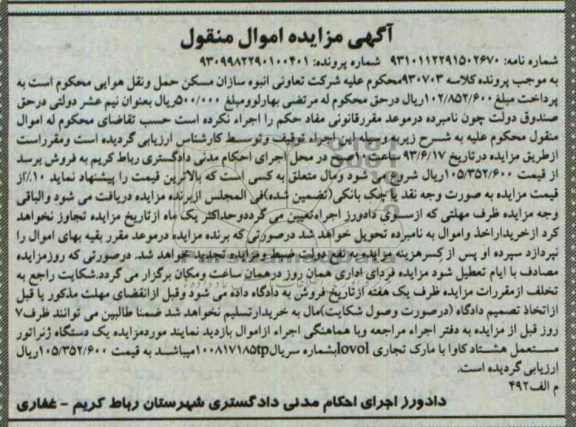 آگهی مزایده اموال منقول
شماره نامه: ۹۳۱۰۱۱۲۲۹۱۵۰۲۶۷۰ شماره پرونده: ۹۳۰۹۹۸۲۲۹۰۱۰۰۴۰۱
به موجب پرونده کلاسه ۹۳۰۷۰۳محکوم علیه شرکت تعاونی انبوه سازان مسکن حمل ونقل هوایی محکوم است به
پرداخت مبلغ۱۰۲/۸۵۲/۶۰۰ریال درحق محکوم له مرتضی بهارلوومبلغ ۵۰۰/۰۰۰ریال بعنوان نیم عشر دولتی درحق
صندوق دولت چون نامبرده درموعد مقررقانونی مفاد حکم را اجراء نکرده است حسب تقاضای محکوم له اموال
منقول محکوم علیه به شرح زیربه وسیله این اجراء توقیف وتوسط کارشناس ارزیابی گردیده است ومقرراست
ازطریق مزایده درتاریخ ۹۳/۶/۱۷ ساعت۱۰صبح در محل اجرای احکام مدنی دادگستری رباط کریم به فروش برسد
از قیمت ۱۰۵/۳۵۲/۶۰۰ریال شروع می شود ومال متعلق به کسی است که بالاترین قیمت را پیشنهاد نماید ۱۰٪از
قیمت مزایده به صورت وجه نقد یا چک بانکی(تضمین شده)فی المجلس ازبرنده مزایده دریافت می شود والباقی
وجه مزایده ظرف مهلتی که ازسوی دادورز اجراءتعیین می گرددوحداکثر یک ماه ازتاریخ مزایده تجاوز نخواهد
کرد ازخریداراخذ واموال به نامبرده تحویل خواهد شد درصورتی که برنده مزایده درموعد مقرر بقیه بهای اموال را
نپردازد سپرده او پس از کسرهزینه مزایده به نفع دولت ضبط ومزایده تجدید خواهد شد. درصورتی که روزمزایده
مصادف با ایام تعطیل شود مزایده فردای اداری همان روز درهمان ساعت ومکان برگزار می گردد.شکایت راجع به
تخلف ازمقررات مزایده ظرف یک هفته ازتاریخ فروش به دادگاه داده می شود وقبل ازانقضای مهلت مذکور یا قبل
ازاتخاذ تصمیم دادگاه (درصورت وصول شکایت)مال به خریدارتسلیم نخواهد شد ضمنا طالبین می توانند ظرف۷
روز قبل از مزایده به دفتر اجراء مراجعه وبا هماهنگی اجراء ازاموال بازدید نمایند موردمزایده یک دستگاه ژنراتور
مستعمل هشتاد کاوا با مارک تجاری lovolبشماره سریال۱۰۰۸۱۷۱۸۵tpمیباشد به قیمت ۱۰۵/۳۵۲/۶۰۰ریال
ارزیابی گردیده است.
م الف۴۹۲
دادورز اجرای احکام مدنی دادگستری شهرستان رباط کریم - غفاری